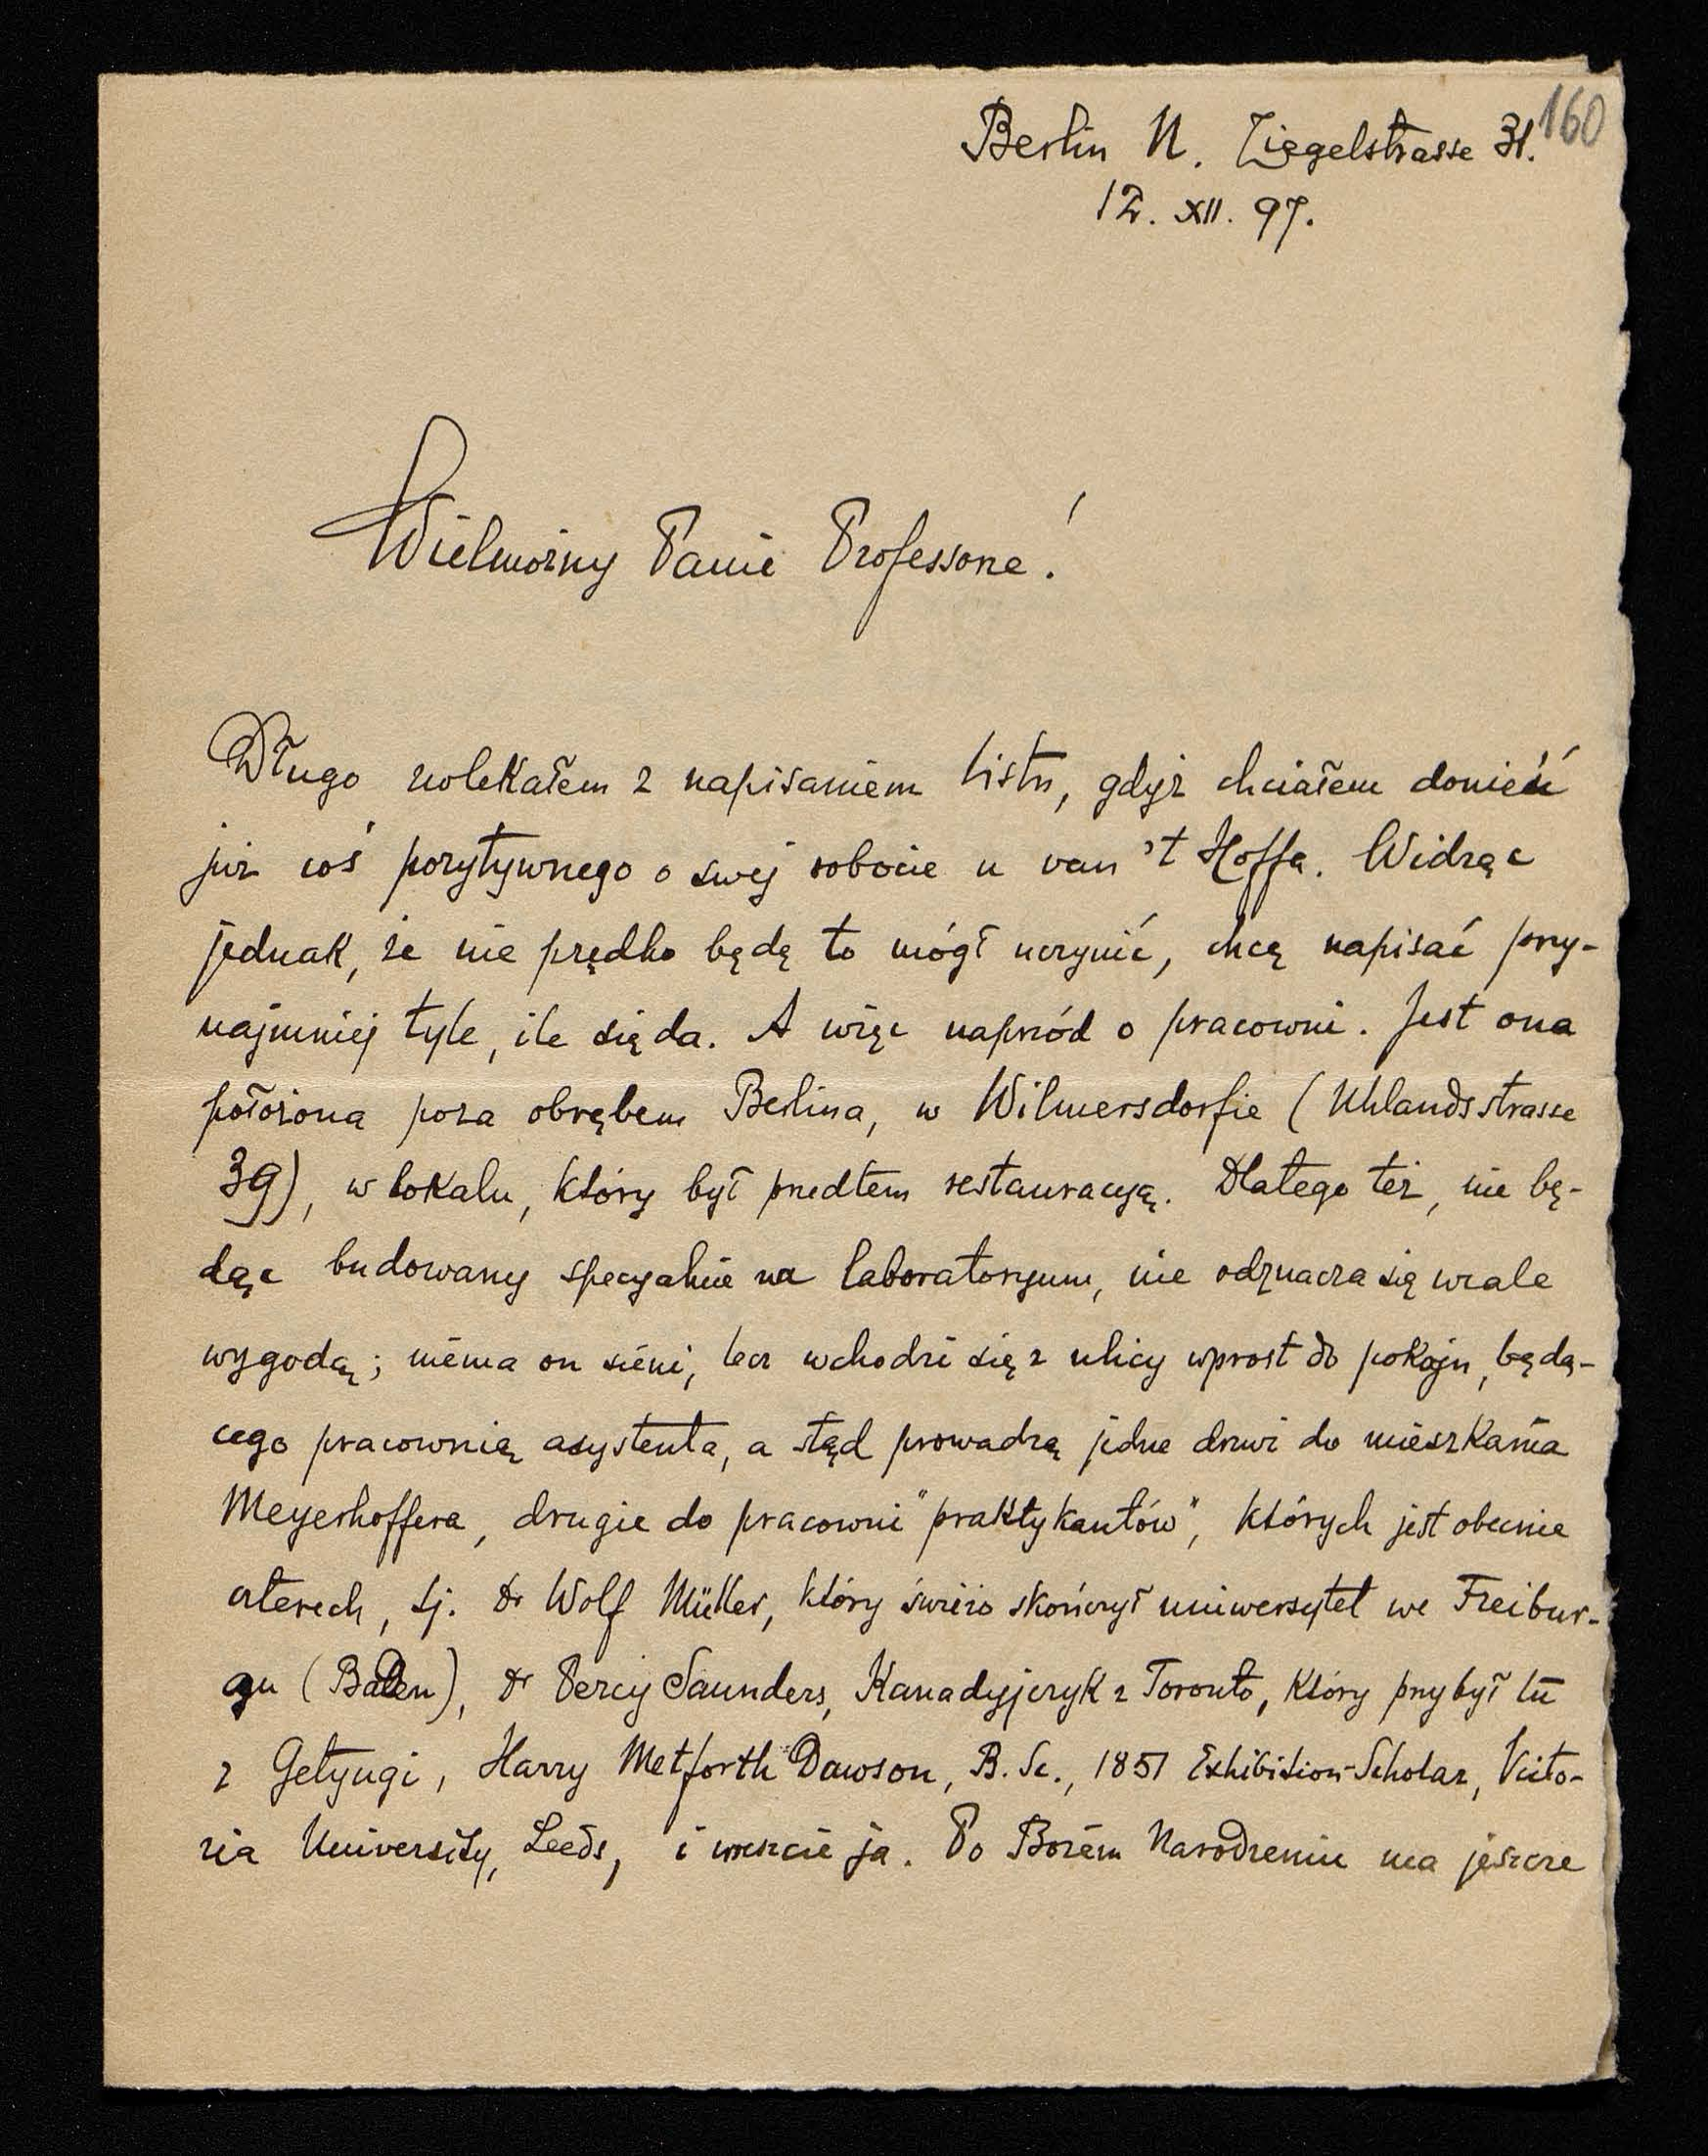 160
Berlin N. Ziegelstrasse 31.
12. XII. 97.
Wielmożny Panie Professorze!
Długo zwlekałem z napisaniem listu, gdyż chciałem donieść
już coś pozytywnego o swej robocie u van 't Hoffa. Widząc
jednak, że nie prędko będę to mógł uczynić, chcę napisać przy-
najmniej tyle, ile się da. A więc naprzód o pracowni. Jest ona
położona poza obrębem Berlina, w Wilmersdorfie (Uhlandsstrasse
39), w lokalu, który był przedtem restauracyą. Dlatego też, nie bę-
dąc budowany specyalnie na laboratoryum, nie odznacza się wcale
wygodą; niéma on sieni, lecz wchodzi się z ulicy wprost do pokoju, będą-
cego pracownią asystenta, a stąd prowadzą jedne drzwi do mieszkania
Meyerhoffera, drugie do pracowni "praktykantów", których jest obecnie
czterech, tj. dr Wolf Müller, który świeżo skończył uniwersytet we Freibur-
gu (Baden), dr Percy Saunders, Kanadyjczyk z Toronto, który przybył tu
z Getyngi, Harry Metforth Dawson, B. Sc., 1851 Exhibition-Scholar, Victo-
ria University, Leeds, i wreszcie ja. Po Bożém Narodzeniu ma jeszcze